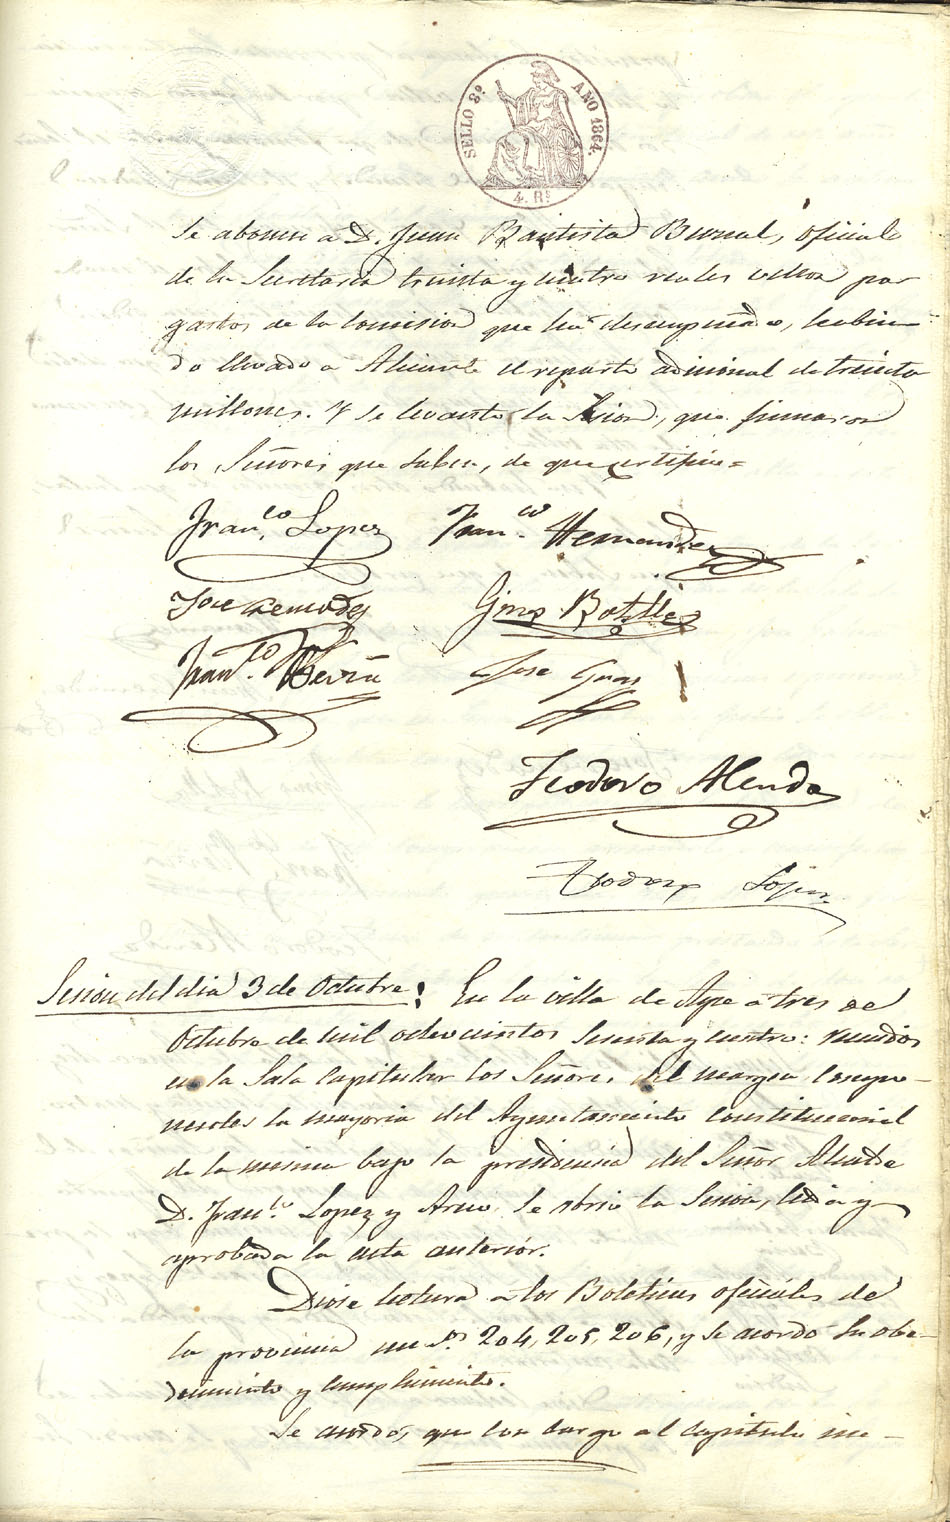 SELLO 8º AÑO 1864.
4. Rs
se abonen a D. Juan Bautista Burnal, oficial
de la Secretaria treinta y cuatro reales vellon por
gastos de la comision que ha desempeñado, habien-
do llevado a Alicante el reparto adicional de treinta
millones. Y se levantó la Sesion, que firmaron
los Señores que saben, de que certifico =
Franco Lopez Franco Hernandez
Jose Remodes Gines Botella
Franco
Jose
Teodoro Alenda
Lopez
Sesion del dia 3 de Octubre: En la villa de Aspe a tres de
Octubre de mil ochocientos sesenta y cuatro: reunidos
en la Sala Capitular los Señores del margen, compo-
nentes la mayoria del Ayuntamiento constitucional
de la misma bajo la presidencia del Señor Alcalde
D. Franco Lopez y se abrió la Sesion, leida y
aprobada la acta anterior.
Diose lectura a los Boletines oficiales de
la provincia numos 204, 205, 206, y se acordó su obe-
decimiento y cumplimiento.
Se acordó, que con cargo al capitulo im-